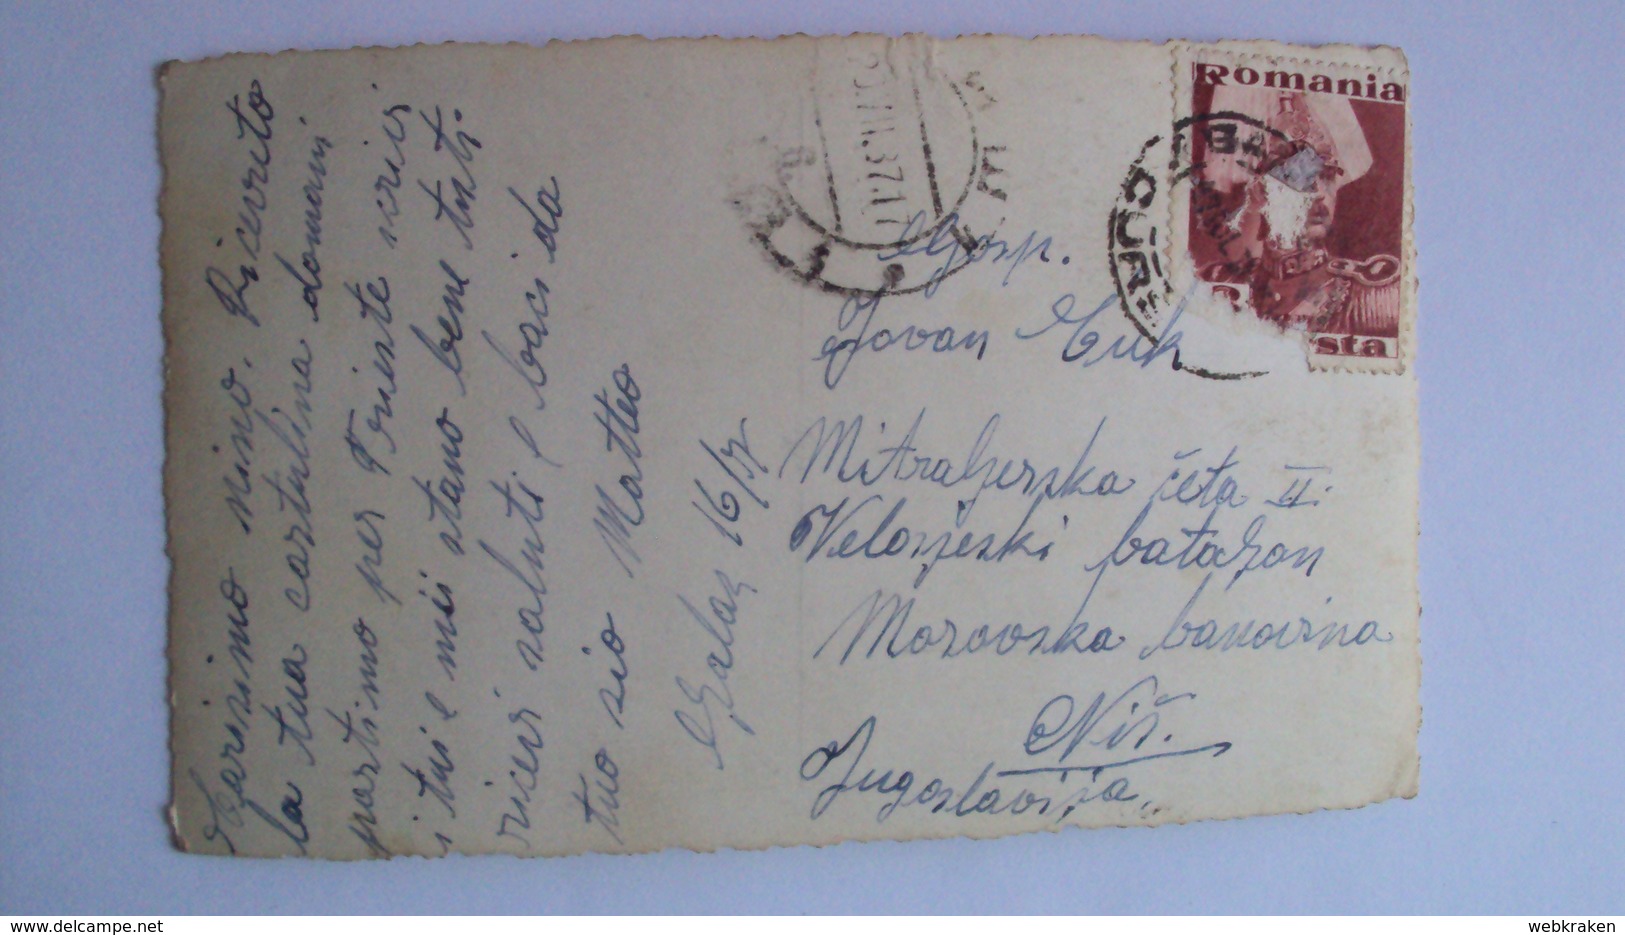 Karisimo nino. Ricevuto
la tua cartulina domani
partimo per Trieste scrivi
i tui e mii stano bene tuti.
ricevi saluti e baci da
tuo sio Matteo
Galaz 16/7
Romania
sta
37.1
Gosp.
Jovan Cuk
Mitraljerska četa II.
Velosjeski bataljon
Moravska banovina
Niš.
Jugoslavija.
webkraken